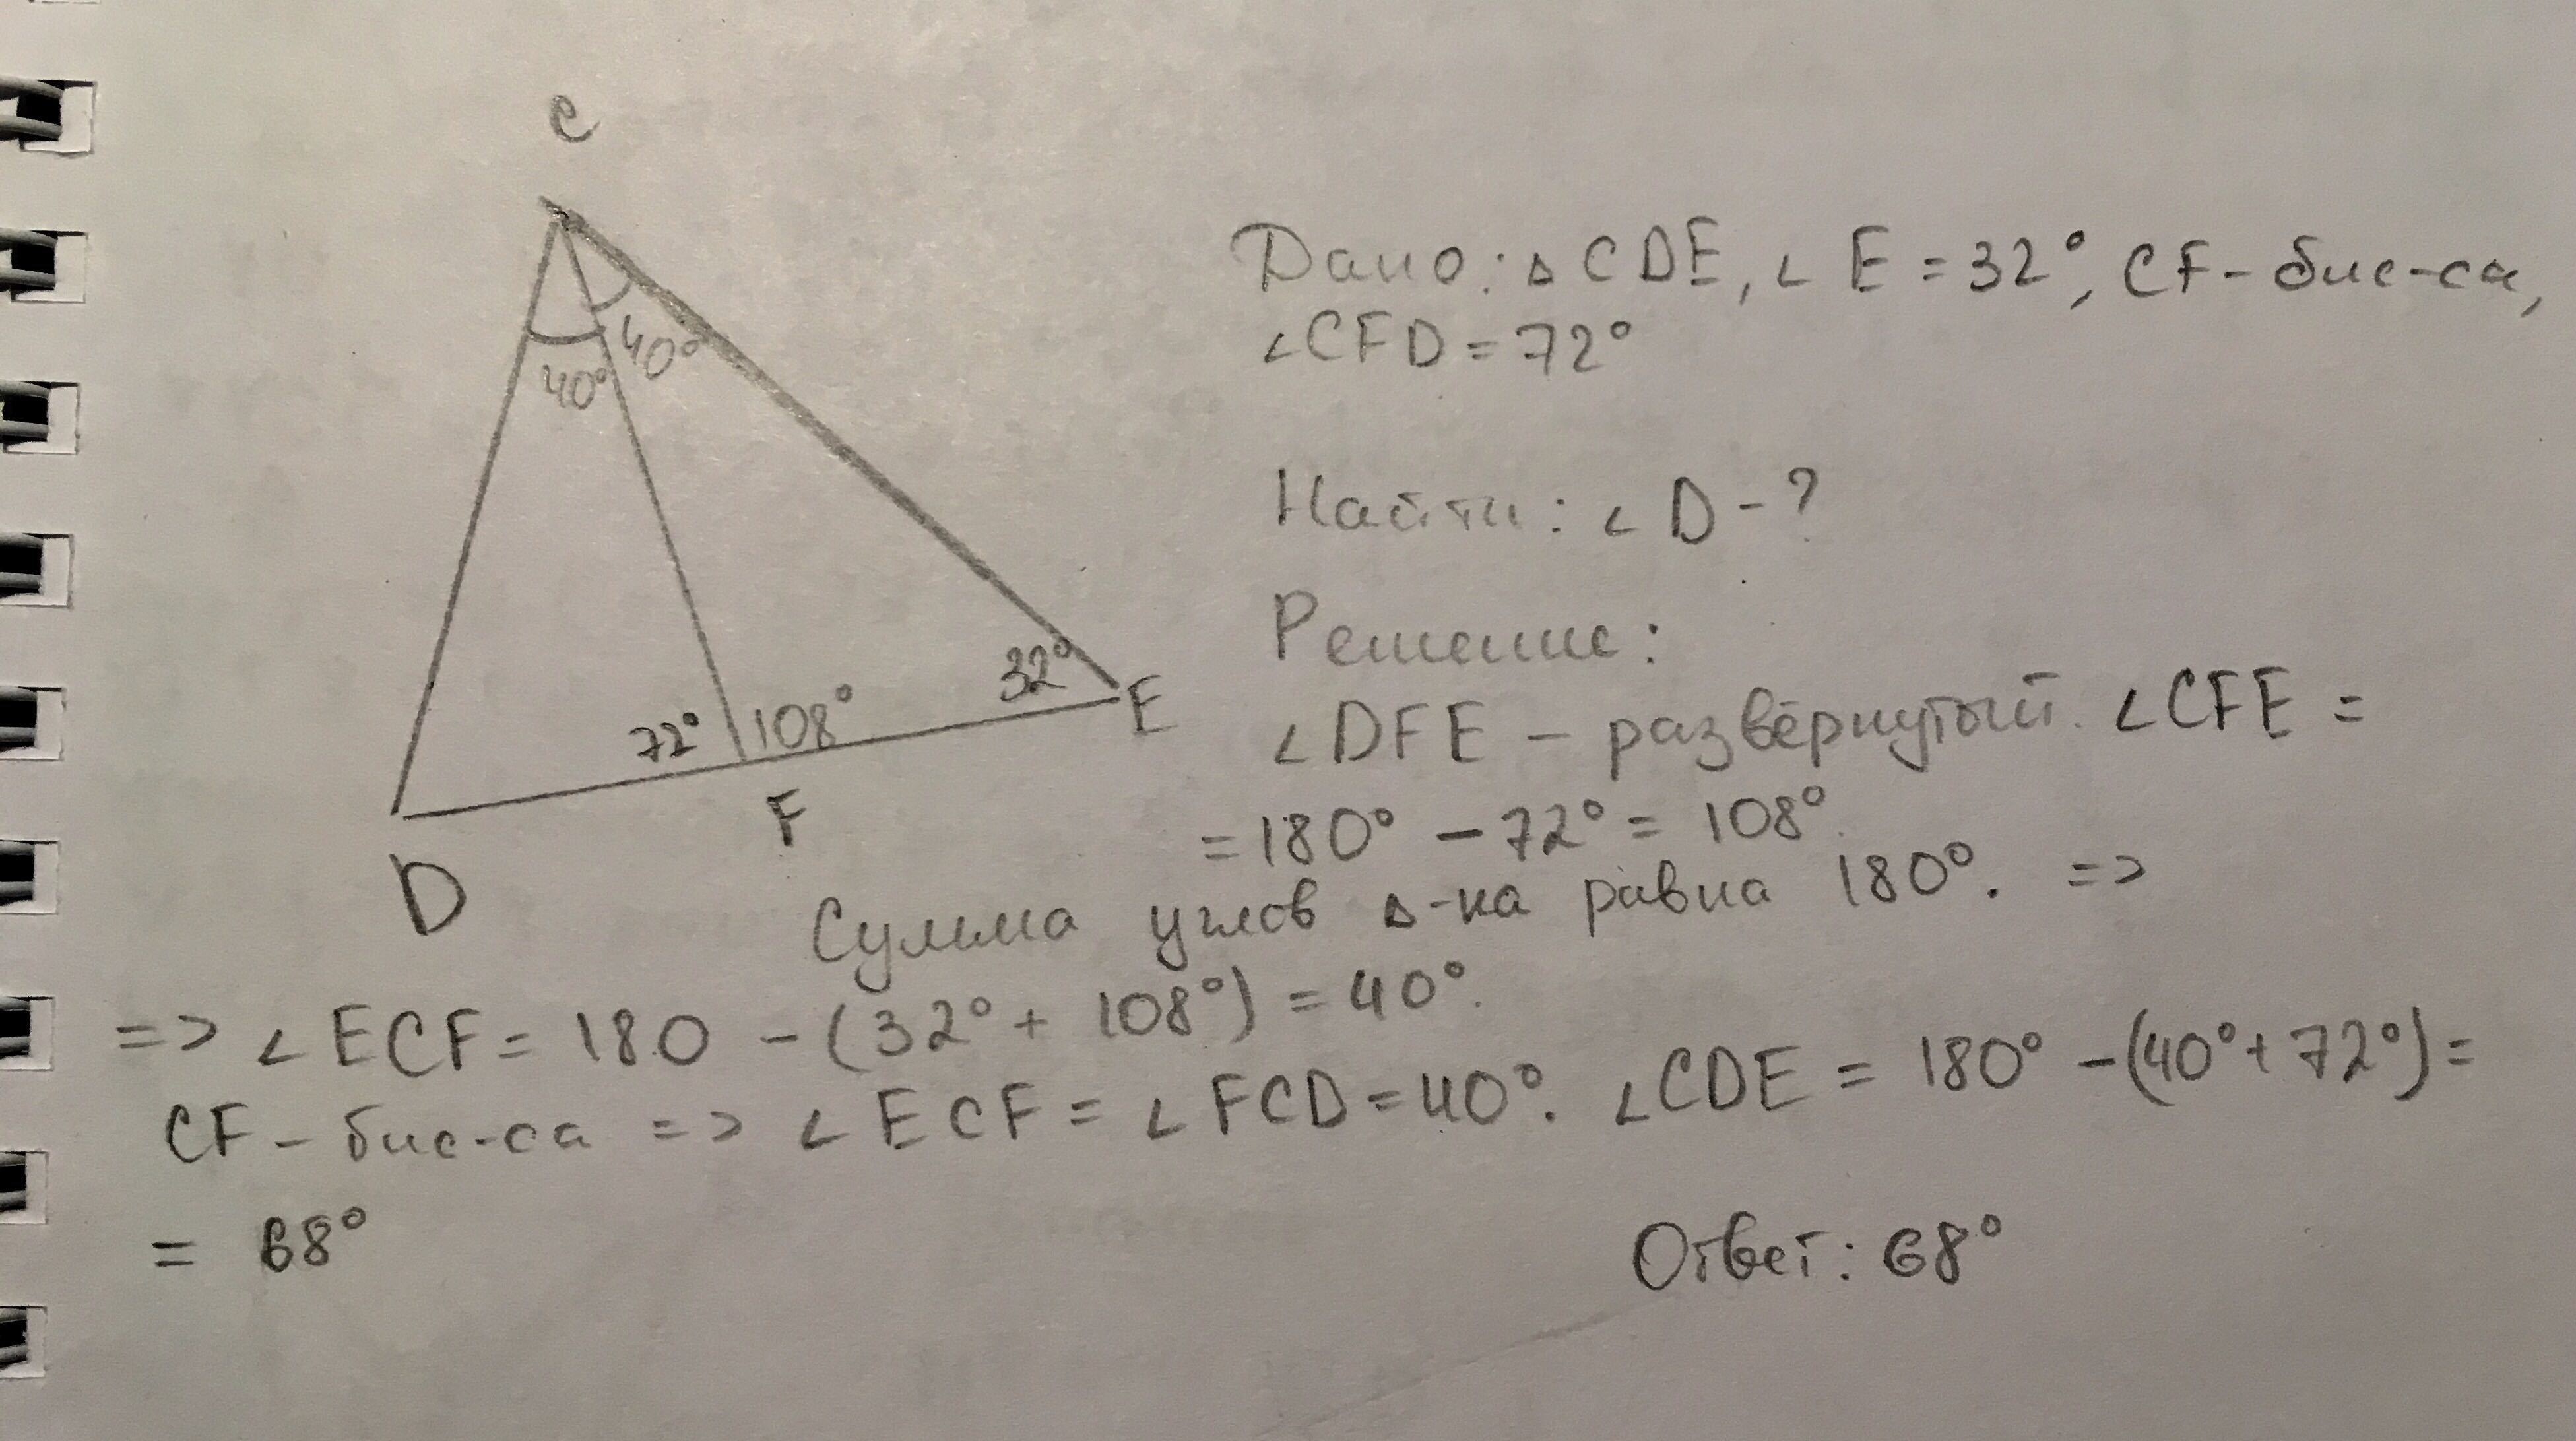 C
40°
40°
32°
E
72°
108°
F
D
Дано: △ CDE, ∠ E = 32°, CF - бис-са,
∠CFD = 72°
Найти: ∠ D - ?
Решение:
∠DFE - развёрнутый. ∠CFE =
= 180° - 72° = 108°.
Сумма углов △-ка равна 180°. =>
=> ∠ECF = 180 - (32° + 108°) = 40°.
CF - бис-са => ∠ECF = ∠FCD = 40°. ∠CDE = 180° - (40° + 72°) =
= 68°
Ответ: 68°